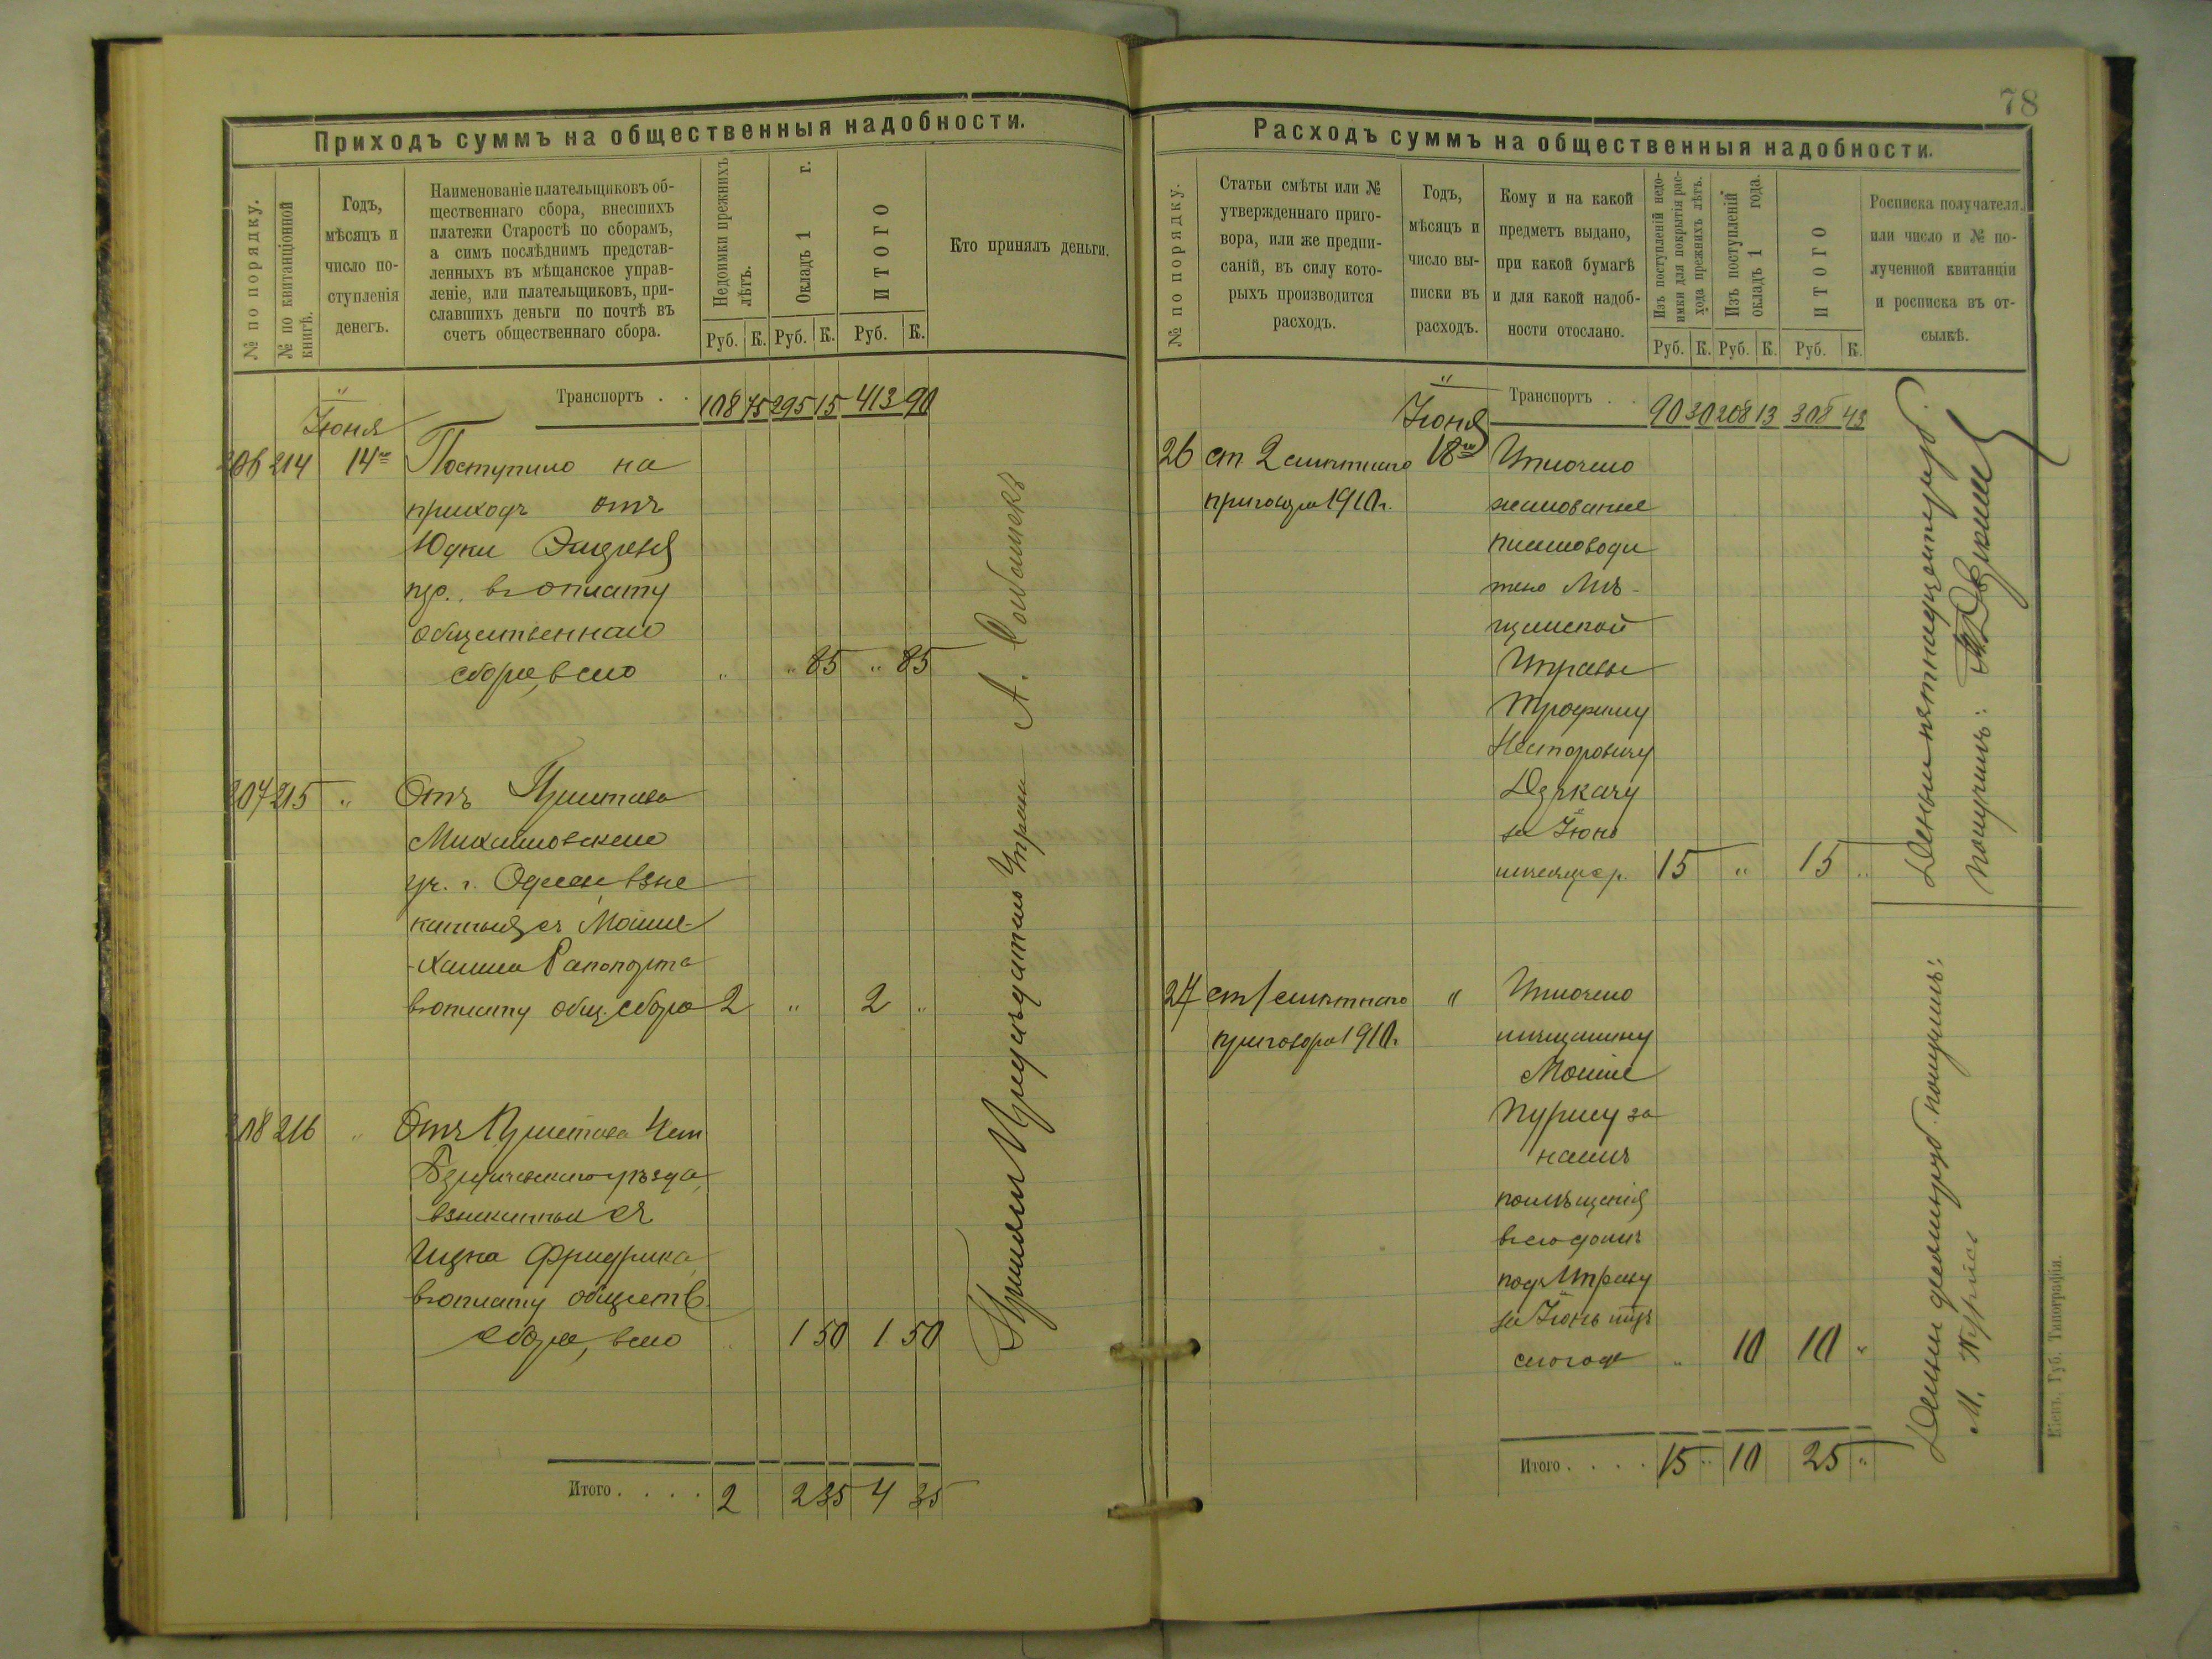 78
Приходъ суммъ на общественныя надобности.
№ по порядку.
№ по квитанціонной
книгѣ.
Годъ,
мѣсяцъ и
число по-
ступленія
денегъ.
Наименованіе плательщиковъ об-
щественнаго сбора, внесшихъ
платежи Старостѣ по сборамъ,
а симъ послѣднимъ представ-
ленныхъ въ мѣщанское управ-
леніе, или плательщиковъ, при-
славшихъ деньги по почтѣ въ
счетъ общественнаго сбора.
Недоимки прежнихъ
лѣтъ.
Окладъ 1 г.
ИТОГО
Руб. К. Руб. К. Руб. К.
Кто принялъ деньги.
Транспортъ . . 108 75 295 15 413 90
Іюня
206 214 14го Поступило на
приходъ отъ
Юдки
въ оплату
общественнаго
сбора, всего " " 85 " 85
207 215 " Отъ Пристава
Михайловскаго
уч. г. Одессы, взыс
канныя съ Мошка-
-Хаима Рапопорта
въ оплату общ. сбора 2 " 2 "
208 216 " Отъ Пристава
уѣзда,
взысканныя съ
Ицка Фридриха,
въ оплату обществ.
сбора, всего " 1 50 1 50
Итого . . . . 2 2 35 4 35
Принялъ Предсѣдатель Управы А.
Расходъ суммъ на общественныя надобности.
№ по порядку.
Статьи смѣты или №
утвержденнаго приго-
вора, или же предпи-
саній, въ силу кото-
рыхъ производится
расходъ.
Годъ,
мѣсяцъ и
число вы-
писки въ
расходъ.
Кому и на какой
предметъ выдано,
при какой бумагѣ
и для какой надоб-
ности отослано.
Изъ поступленій недо-
имки для покрытія рас-
хода прежнихъ лѣтъ.
Изъ поступленій
окладъ 1 года.
ИТОГО
Руб. К. Руб. К. Руб. К.
Росписка получателя,
или число и № по-
лученной квитанціи
и росписка въ от-
сылкѣ.
Транспортъ . . 90 30 208 13 308 43
Іюня
26 ст 2 смѣтнаго 18го Уплочено
приговора 1910г. жалованіе
письмоводи
телю Мѣ-
щанской
Управы
Трофиму
Несторовичу
Дзюкачу
за Іюнь
мѣсяцъ с.г. 15 " 15 "
Деньги пятнадцать руб.
получилъ:
27 ст 1 смѣтнаго " Уплочено
приговора 1910г. мѣщанину
Мошке
Пурису за
наемъ
помѣщенія
въ его домѣ
подъ Управу
за Іюнь мцъ
сего года " 10 10 "
Деньги десять руб. получилъ:
М. Пурисъ
Итого . . . . 15 " 10 25 "
Кіевъ. Губ. Типографія.